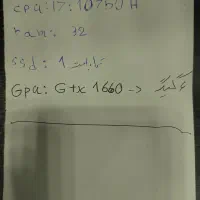 cpu: i7: 10750 H
ram: 32
ssd: 1 ترابایت
Gpu: Gtx 1660 ->